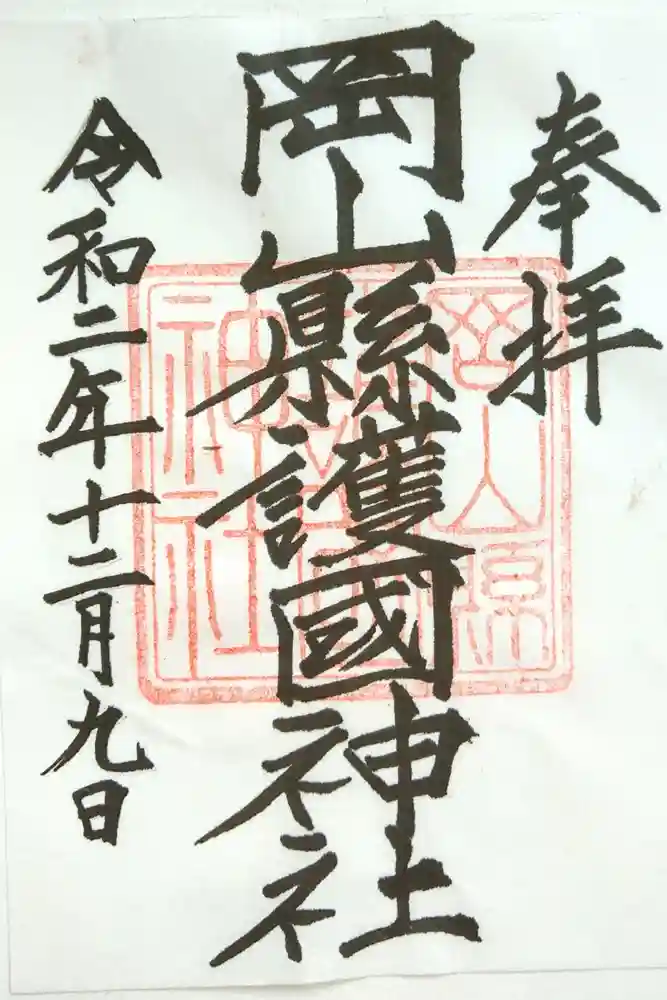 奉拝
岡山縣護國神社
令和二年十二月九日
岡山県
護國
神社